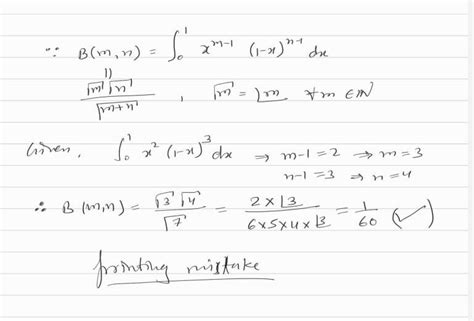 ∵ B(m,n) = ∫₀¹ x^(m-1) (1-x)^(n-1) dx
||
(Γm Γn)/(Γ(m+n)) , Γm = ⌊m ∀m ∈ ℕ
Given, ∫₀¹ x² (1-x)³ dx ⇒ m-1=2 ⇒ m=3
n-1=3 ⇒ n=4
∴ B(m,n) = (Γ3 Γ4)/(Γ7) = (2×⌊3)/(6×5×4×⌊3) = 1/60 (✓)
printing mistake